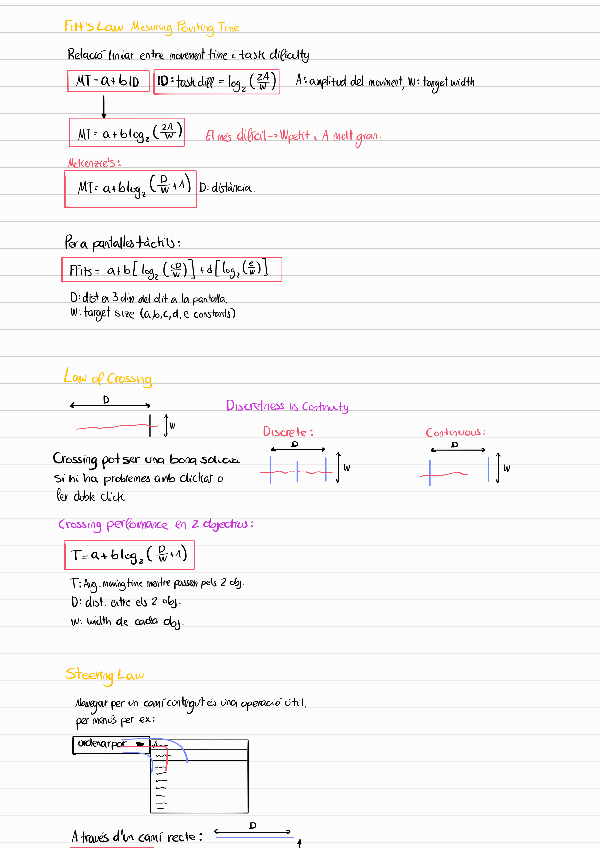 Fitt's Law Mesuring Pointing Time
Relació liniar entre movement time i task dificulty
MT = a + b ID
ID: task diff = log₂ (2A/W)
A: amplitud del moviment, W: target width
MT = a + b log₂ (2A/W)
El més difícil → W petit i A molt gran.
McKenzie's:
MT = a + b log₂ (D/W + 1)
D: distància.
Per a pantalles tàctils:
FFits = a + b [log₂ (cD/W)] + d [log₂ (e/W)]
D: dist en 3 dim del dit a la pantalla.
W: target size (a, b, c, d, e constants)
Law of Crossing
D
W
Discretness vs Continuity
Discrete:
D
W
Continuous:
D
W
Crossing pot ser una bona solució
si hi ha problemes amb clickar o
fer doble click
Crossing performance en 2 objectius:
T = a + b log₂ (D/W + 1)
T: Avg. moving time mentre passem pels 2 obj.
D: dist. entre els 2 obj.
W: width de cada obj.
Steering Law
Navegar per un camí contingut és una operació útil,
per menús per ex:
ordenar por
A través d'un camí recte:
D